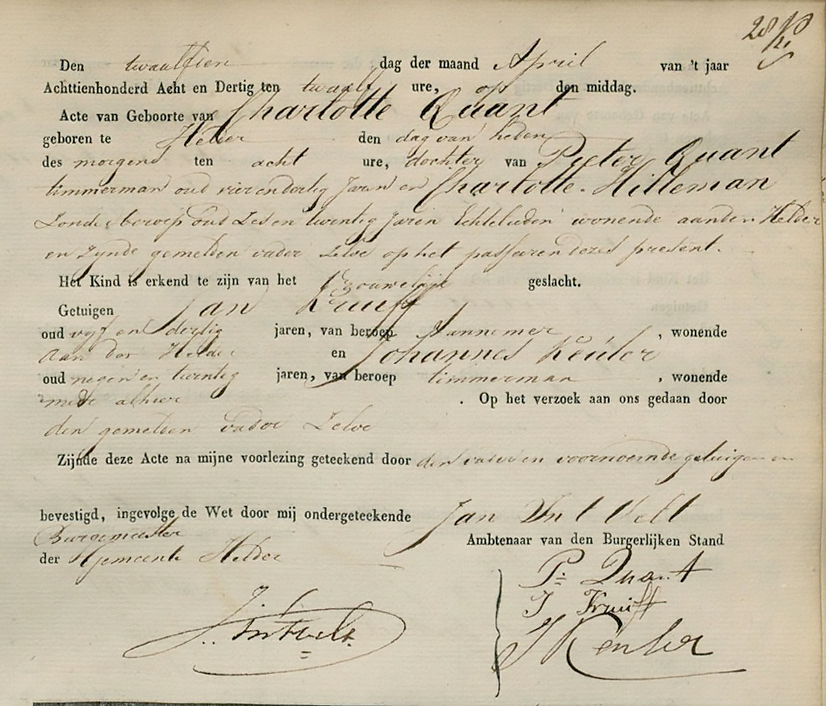 Den twaalfden dag der maand April van 't jaar
Achttienhonderd Acht en Dertig ten twaalf ure, op den middag.
Acte van Geboorte van Charlotte Quant
geboren te Helder den dag van heden
des morgens ten acht ure, dochter van Pieter Quant
timmerman oud vierendertig Jaren en Charlotte Hilleman
Zonder beroep oud Zes en twintig Jaren Echtelieden wonende aan den Helder
en Zynde gemelden vader Zelve op het passeren dezes present.
Het Kind is erkend te zijn van het Vrouwelijk geslacht.
Getuigen Jan Kruijff
oud vyf en dertig jaren, van beroep Aannemer, wonende
Aan den Helder en Johannes Keuler
oud negen en twintig jaren, van beroep timmerman, wonende
mede alhier. Op het verzoek aan ons gedaan door
den gemelden vader Zelve
Zijnde deze Acte na mijne voorlezing geteekend door den vader en voornoemde getuigen en
bevestigd, ingevolge de Wet door mij ondergeteekende Jan In't Velt
Burgemeester
Ambtenaar van den Burgerlijken Stand
der Gemeente Helder
P. Quant
J Kruijff
J. In't Velt
J Keuler